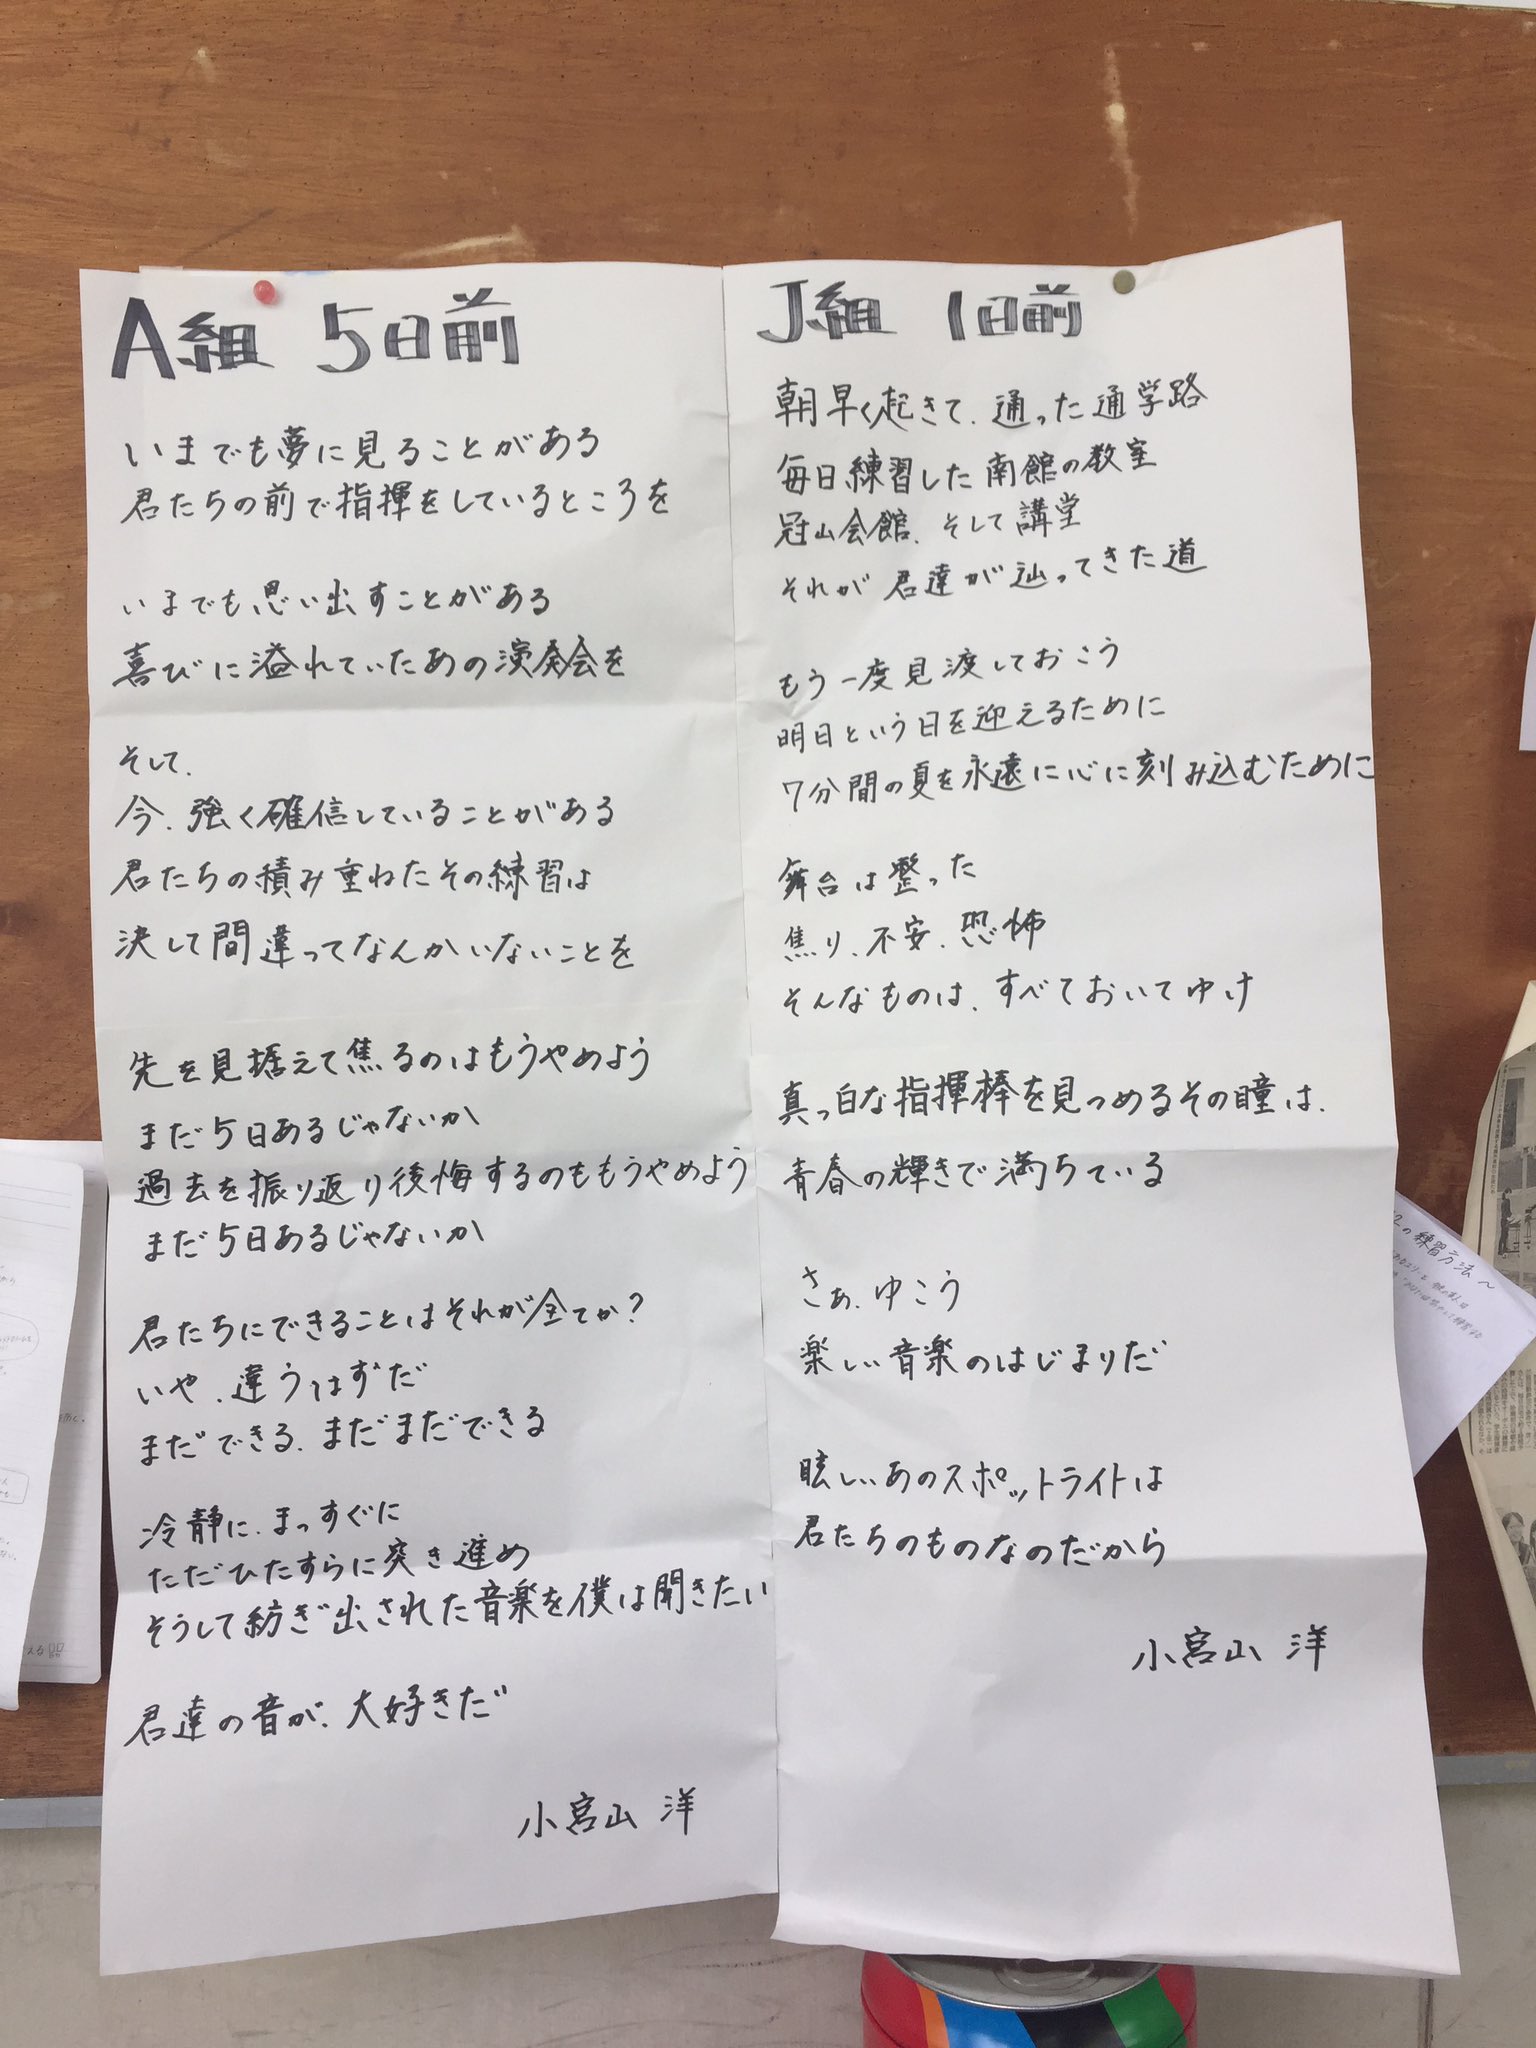 A組 5日前
いまでも夢に見ることがある
君たちの前で指揮をしているところを
いまでも思い出すことがある
喜びに溢れていたあの演奏会を
そして、
今、強く確信していることがある
君たちの積み重ねたその練習は
決して間違ってなんかいないことを
先を見据えて焦るのはもうやめよう
まだ5日あるじゃないか
過去を振り返り後悔するのももうやめよう
まだ5日あるじゃないか
君たちにできることはそれが全てか?
いや、違うはずだ
まだできる、まだまだできる
冷静に、まっすぐに
ただひたすらに突き進め
そうして紡ぎ出された音楽を僕は聞きたい
君達の音が、大好きだ
小宮山 洋
J組 1日前
朝早く起きて、通った通学路
毎日練習した南館の教室
冠山会館、そして講堂
それが君達が辿ってきた道
もう一度見渡しておこう
明日という日を迎えるために
7分間の夏を永遠に心に刻み込むために
舞台は整った
焦り、不安、恐怖
そんなものは、すべておいてゆけ
真っ白な指揮棒を見つめるその瞳は、
青春の輝きで満ちている
さあ、ゆこう
楽しい音楽のはじまりだ
眩しいあのスポットライトは
君たちのものなのだから
小宮山 洋
の練習方法～